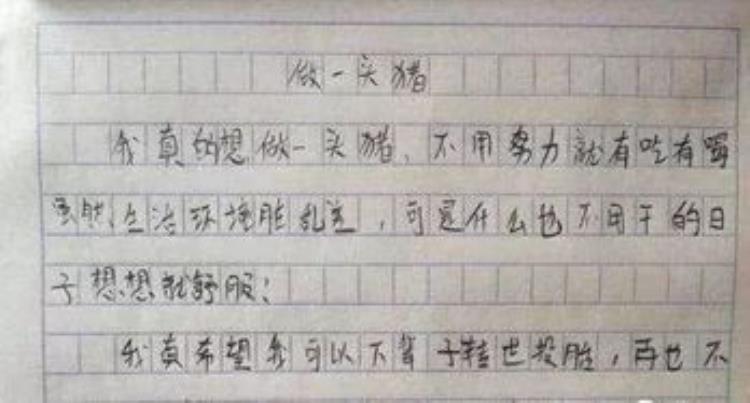 做一头猪
我真的想做一头猪，不用努力就有吃有喝
虽然生活环境脏乱差，可是什么也不用干的日
子想想就舒服；
我真希望我可以下辈子转世投胎，再也不